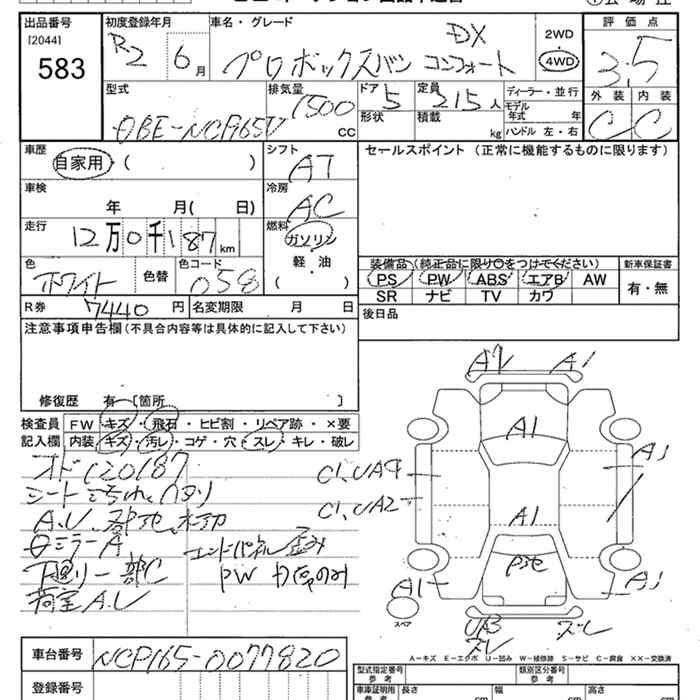 出品番号
[2044]
583
初度登録年月
R2 6月
車名・グレード
プロボックスバン コンフォート DX
2WD
4WD
評価点
3.5
外装 内装
C C
型式
DBE-NCP165V
排気量
1500 CC
ドア 5
形状
定員 2/5人
積載 kg
ディーラー・並行
モデル年式 年
ハンドル 左・右
車歴
自家用・( )
シフト
AT
車検
年 月( 日)
冷房
AC
走行
12万0千187km
燃料
ガソリン
軽・油
( )
色
ホワイト
色替
色コード
058
R券 7440円
名変期限 月 日
セールスポイント (正常に機能するものに限ります)
装備品 (純正品に限り○をつけてください)
PS PW ABS エアB AW
SR ナビ TV カワ
新車保証書
有・無
後日品
注意事項申告欄(不具合内容等は具体的に記入して下さい)
修復歴 有-[箇所 ]
検査員記入欄
FW キズ・飛石・ヒビ割・リペア跡・×要
内装 キズ・汚レ・コゲ・穴・スレ・キレ・破レ
オド120187
シート汚れ、
A.U.
ミラーA
エンドパネル歪み
下回り一部C
PW
荷室A.U
A1
A1
A1
A1
C1、UA9
C1、UA2
A1
A1
スペア
UA3
ズレ
ズレ
A-キズ E-エクボ U-凹み W-補修跡 S-サビ C-腐食 ××-交換済
車台番号
NCP165-0077820
登録番号
型式指定番号 参考
類別区分番号 参考
車庫証明用 参考
長さ cm
幅 cm
高さ cm